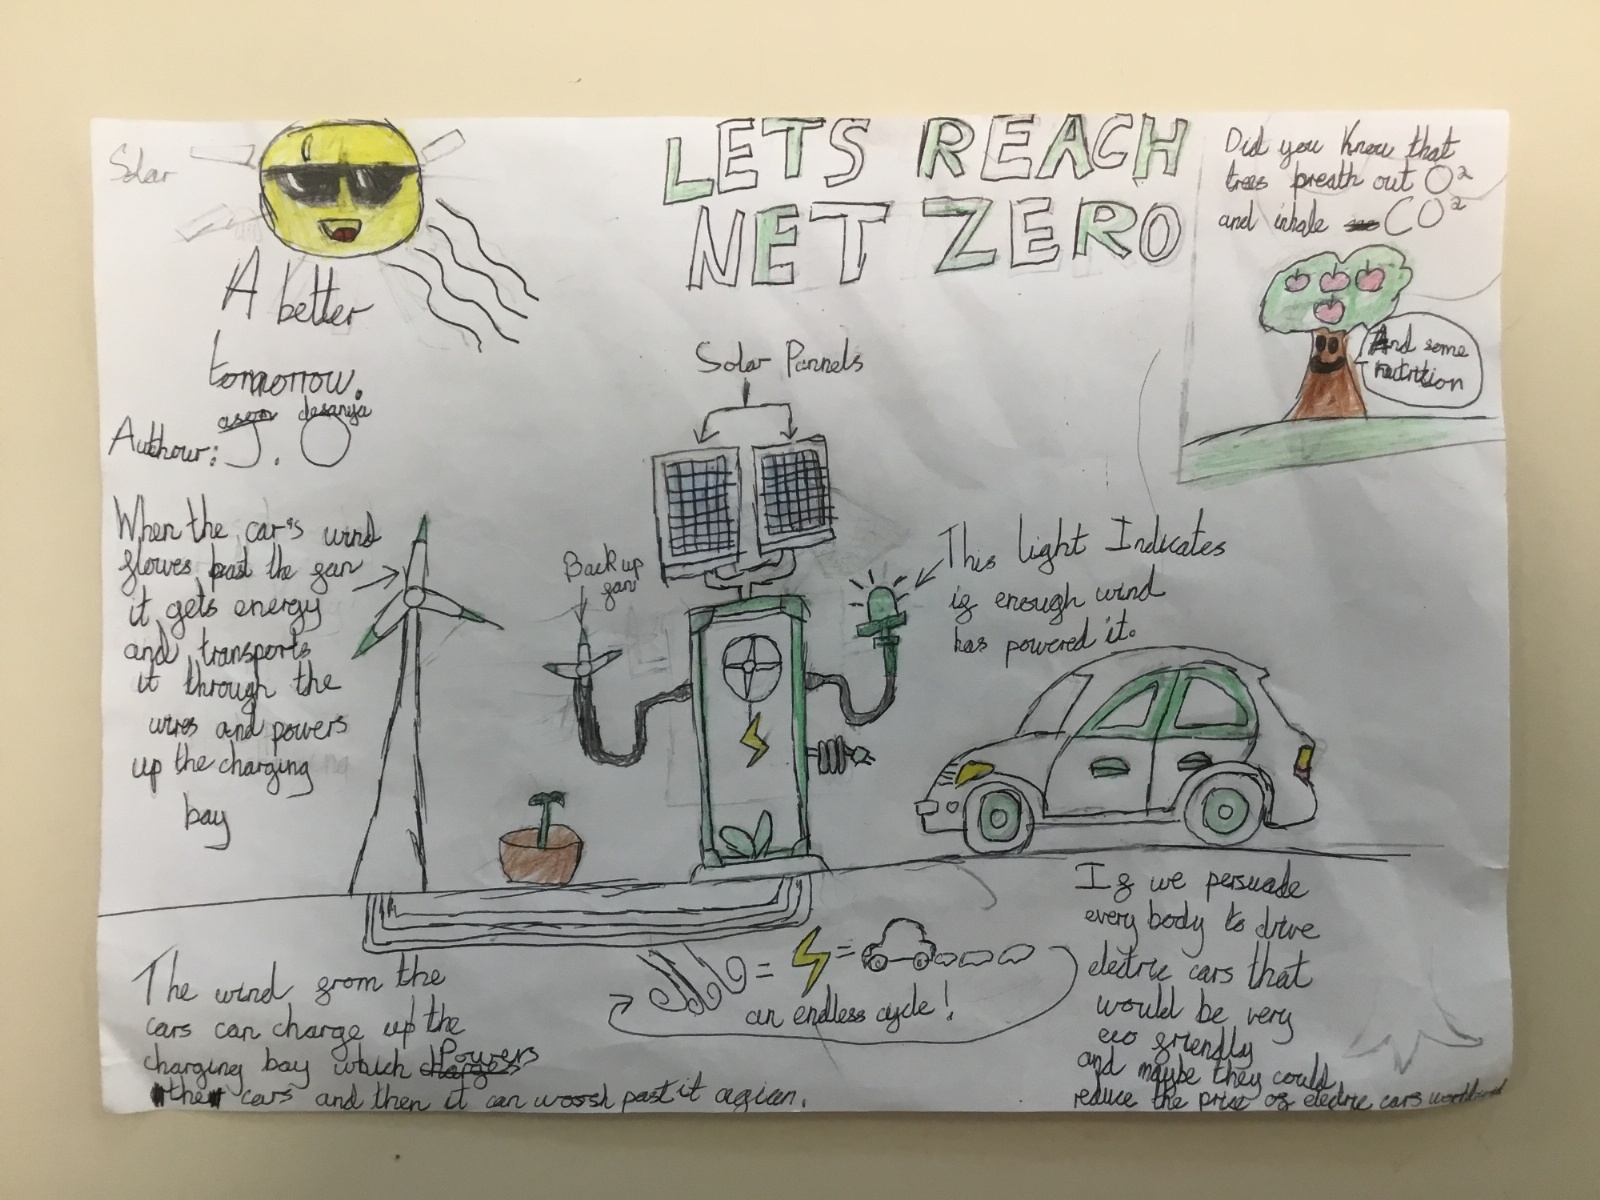 Solar
LETS REACH
NET ZERO
Did you Know that
trees breath out O²
and inhale CO²
And some
nutrition
A better
tomorrow.
ason desanya
Authour: J. O
Solar Pannels
When the car's wind
flowes past the fan
it gets energy
and transports
it through the
wires and powers
up the charging
bay
Back up
fan
This light Indicates
if enough wind
has powered it.
The wind from the
cars can charge up the
charging bay which Powers
the cars and then it can woosh past it agian.
= =
an endless cycle!
If we persuade
every body to drive
electric cars that
would be very
eco friendly
and maybe they could
reduce the price of electric cars